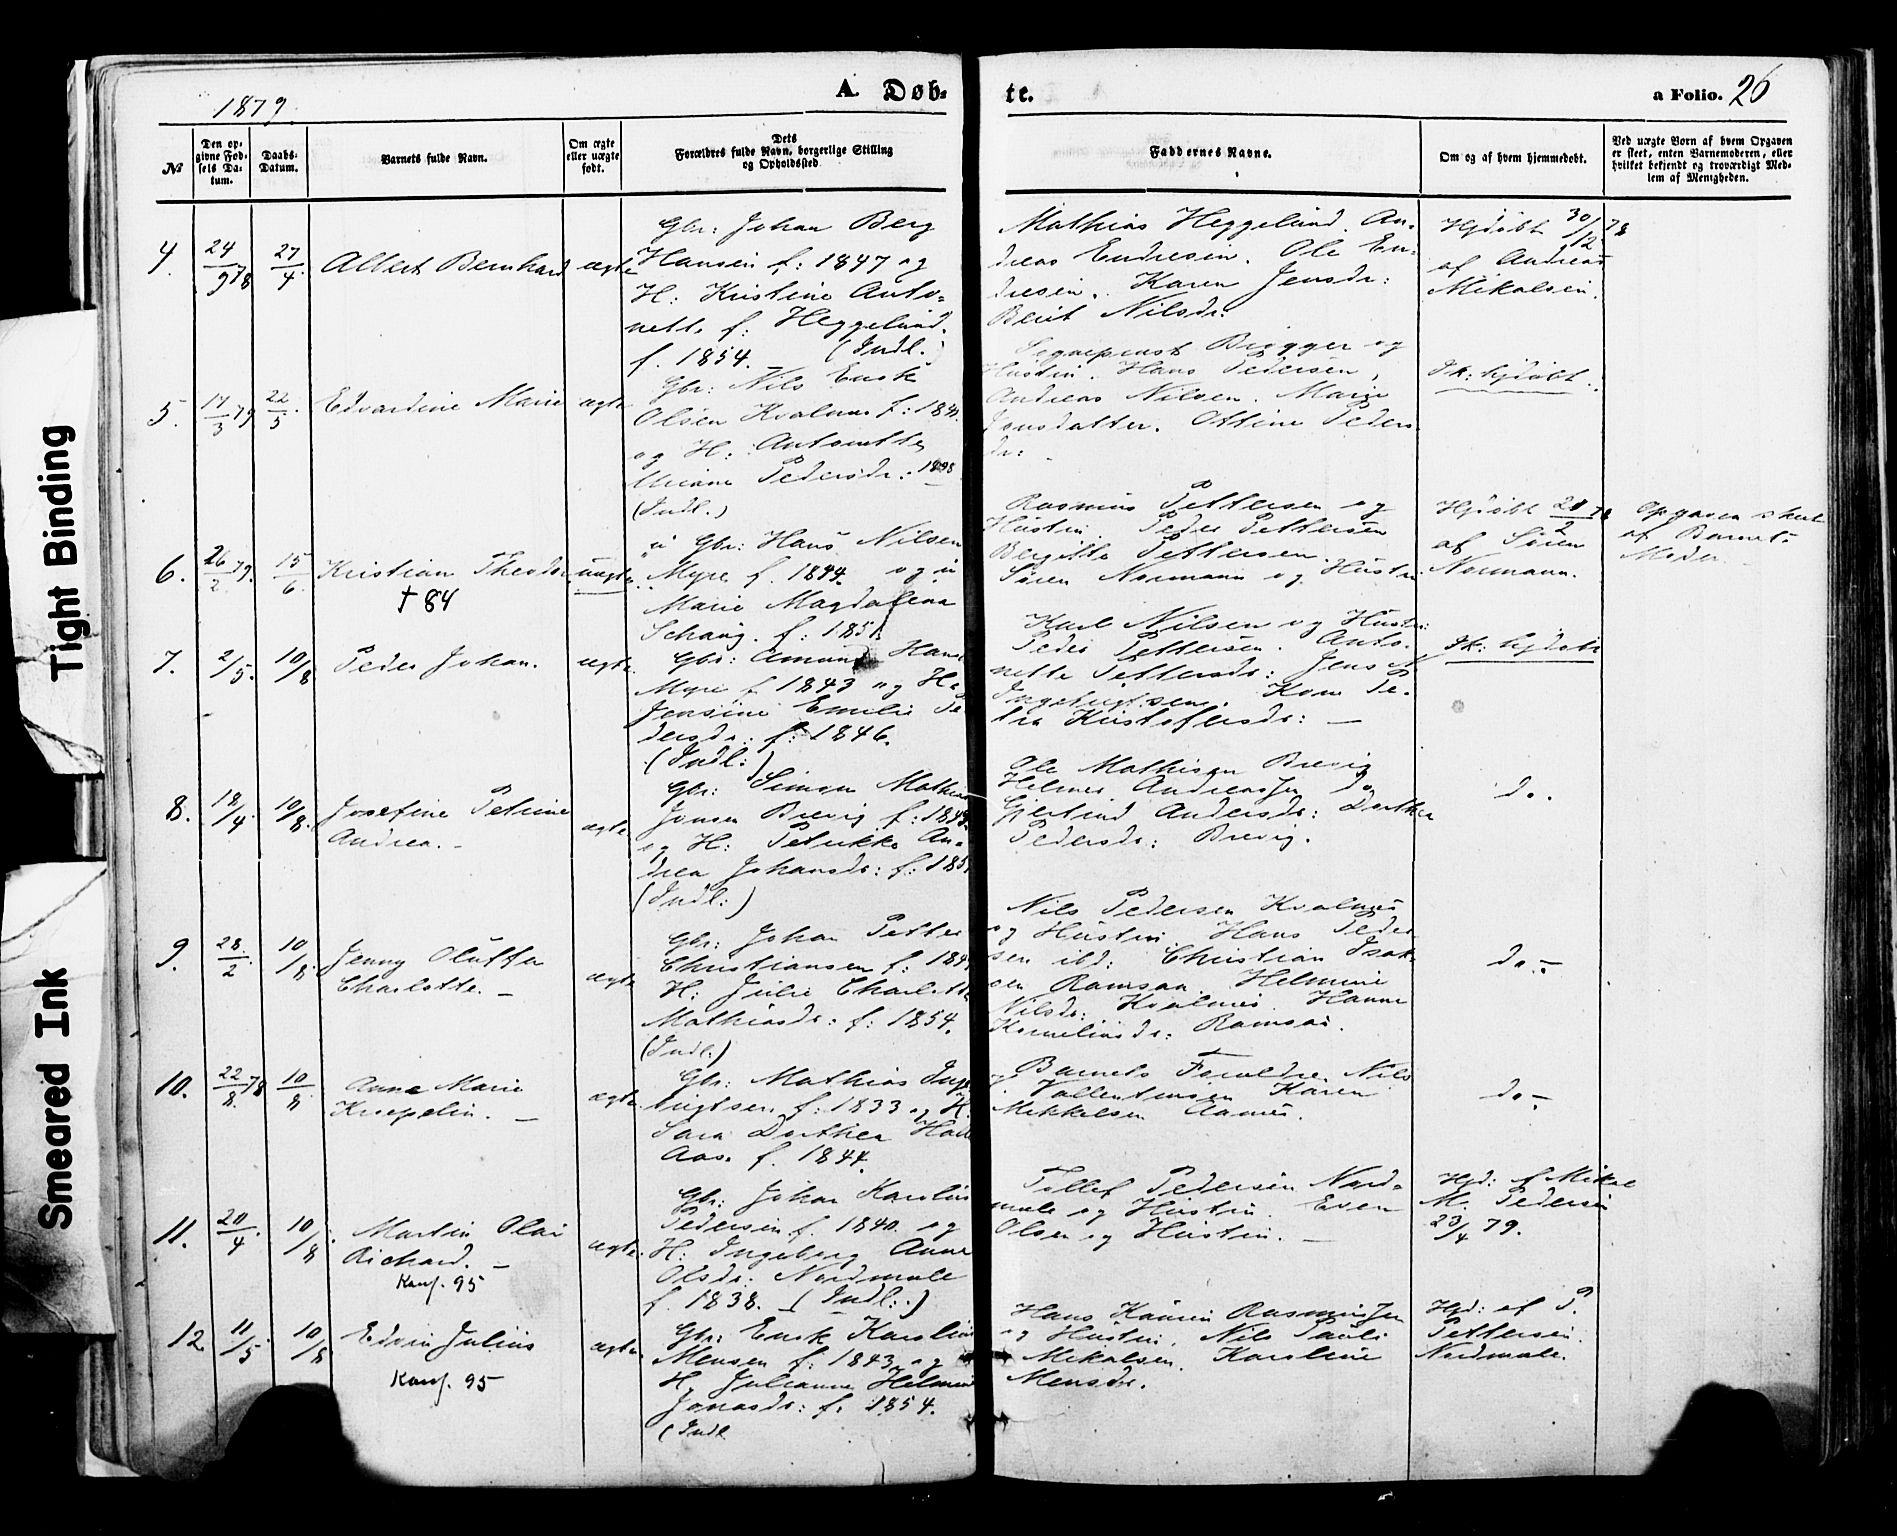 1879.
A. Døb-
te.
a Folio. 26
№
Den op-
givne Fød-
sels Da-
tum.
Daabs-
Datum.
Barnets fulde Navn.
Om ægte
eller uægte
født.
Dets
Forældres fulde Navn, borgerlige Stilling
og Opholdssted
Faddernes Navne.
Om og af hvem hjemmedøbt.
Ved uægte Børn af hvem Opgaven
er skeet, enten Barnemoderen, eller
hvilket bekjendt og troværdigt Med-
lem af Menigheden.
4.
24/9 78
27/4.
Albert Bernhard
ægte
Gbr: Johan Berg
Hansen f: 1847 og
H: Kristine Anto-
nette f: Heggelund.
f. 1854. (Indl.)
Mathias Heggelund. An-
dreas Endresen. Ole En-
dresen. Karen Jensdr:
Berit Nilsdr:
Hjdøbt 30/12 78
af Andreas
Mikalsen.
5.
17/3 79
22/5.
Edvardine Marie
ægte
Gbr: Nils Enok
Olsen Kvalnes f: 1840.
og H: Antonette
Pedersdr:
(Indl.)
Sognepræst Brøgger og
Hustru. Hans Pedersen,
Andreas Nilsen. Marie
Jonsdatter. Ottine Peders
dr:
Ik: hjdøbt.
6.
26/2 79.
15/6
Kristian Theodor
† 84
uægte
u Gbr: Hans Nilsen
Myre f. 1844. og u
Marie Magdalena
Schaug. f: 1851
Rasmus Pettersen og
Hustru. Peder Pettersen
Bergitte Pettersen.
Søren Normann og Hustru
Hjdøbt 28/2 79
af Søren
Normann.
Opgaven skeet
af Barnets
Moder.
7.
2/5.
10/8
Peder Johan.
ægte.
Gbr: Amund Hans
Myre f 1843 og H.
Jensine Emilie Pe
dersdr: f: 1846.
(Indl:)
Karl Nilsen og Hustr:
Peder Pettersen. Anto-
nette Pettersdr: Jens N
Ingebrigtsen. Kone Pe-
tra Kristofersdr: —
Ik: hjdøbt
8.
18/4.
10/8.
Josefine Petrine
Andrea. -
ægte
Gbr: Simon Mathias
Jonsen Brevig f: 1849.
og H: Petrikke An-
drea Johansdr: f: 185
(Indl:)
Ole Mathisen Brevig
Helmer Andreassen do
Gjertrud Andersdr: Dorthea
Pedersdr: Brevig.
do.
9.
28/2
10/8.
Jenny Oluffa
Charlotte. -
ægte
Gbr: Johan Petter
Christiansen f: 184
H: Julie Charlotte
Mathiasdr: f: 1854.
(Indl.)
Nils Pedersen Kvalnes
og Hustru Hans Peder
sen ibd: Christian Isak-
sen Ramsaa. Helmine
Nilsdr: Kvalnes Hanna
Korneliusdr: Ramsaa.
do. -
10.
22/8. 78
10/8
Anna Marie
Kræpelin. —
ægte.
Gbr: Mathias Inge
brigtsen f: 1833 og H.
Sara Dorthea Hall
Aas. f. 1844.
Barnets Forældre. Nils
Vallentinsen Karen
Mekkelsen Aanes.
do -
11.
20/4.
10/8
Martin Olai
Richard. —
Konf. 95
ægte.
Gbr: Johan Karolius
Pedersen f. 1840. og
H: Ingeborg Anna
Olsdr: Nordmele
f. 1838. — (Indl:.)
Tollef Pedersen Nord-
mele og Hustru. Even
Olsen og Hustru. —
Hjd: af Mikal
M. Pedersen
23/4 79.
12
11/5
10/8
Edvin Julius
Konf. 95
ægte.
Gbr: Enok Karolius
Mensen f: 1843 og
H. Julianna Helmine
Jonasdr: f. 1854.
(Indl
Hans Rasmussen
og Hustru. Nils Pauli
Mikalsen. Karoline
Mensdr.
Hjd: af P.
Pettersen.
Nordmele.
Tight Binding
Smeared Ink